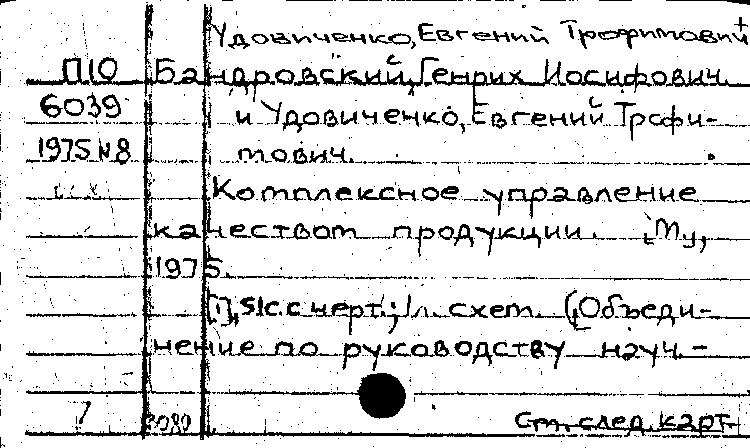 Удовиченко, Евгений Трофимович +
П10 Бандровский, Генрих Иосифович
6039 и Удовиченко, Евгений Трофи-
1975 № 8 мович.
Комплексное управление
качеством продукции. М.,
1975.
[1], 51с. с черт.; 1 л. схем. (Объеди-
нение по руководству науч.-
См. след. карт.